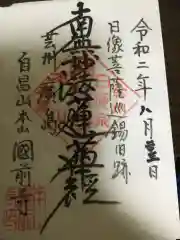 令和二年八月三日
日像菩薩巡錫旧跡
南無妙法蓮華経
芸州 廣島
自昌山本山 國前寺